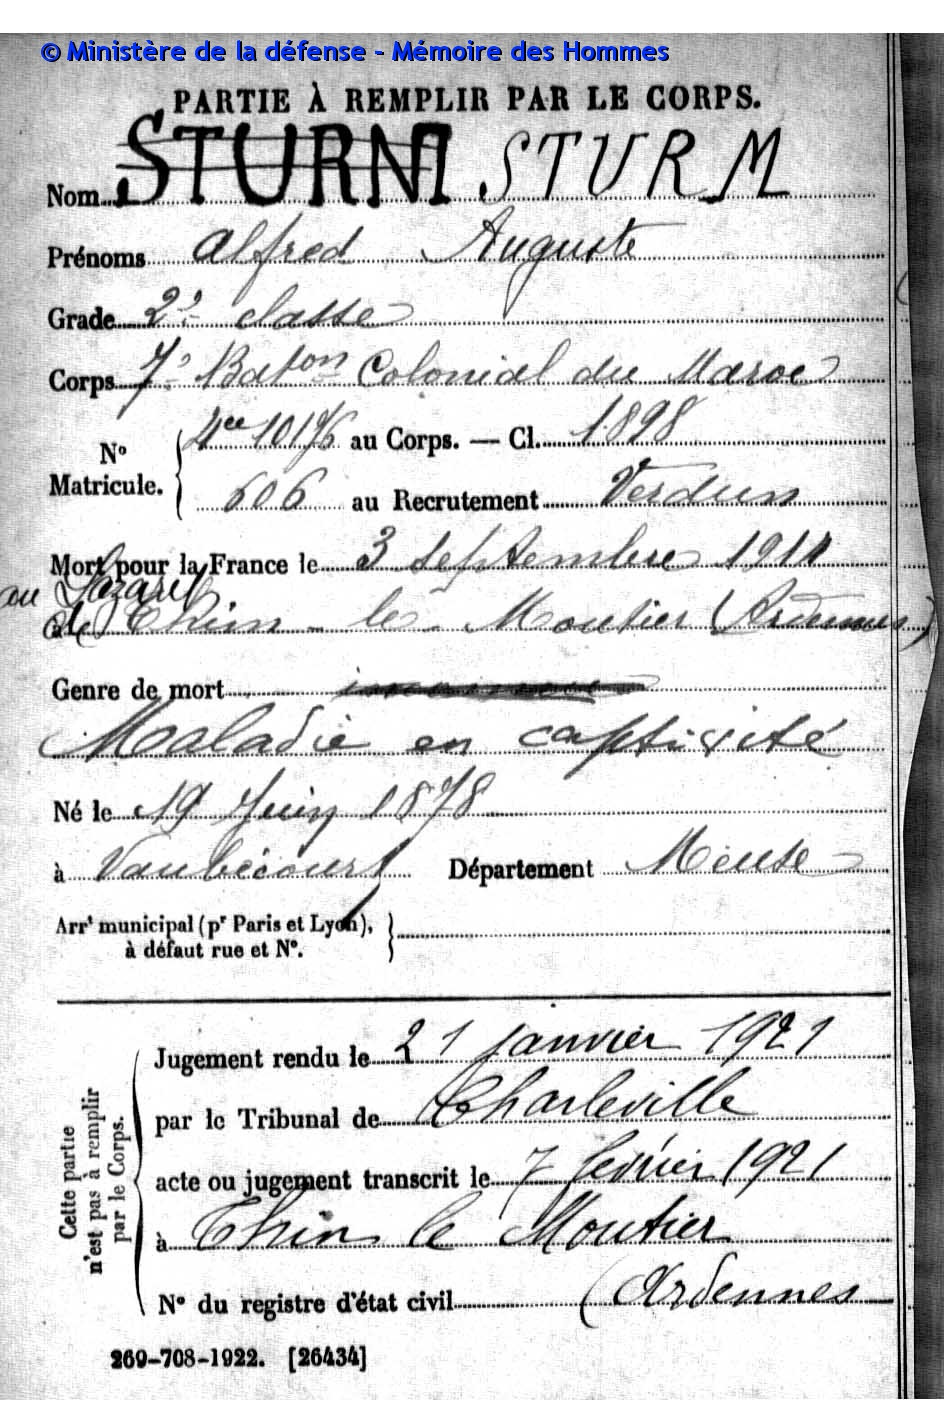 © Ministère de la défense - Mémoire des Hommes
PARTIE À REMPLIR PAR LE CORPS.
Nom STURM
Prénoms Alfred Auguste
Grade 2e classe
Corps 7e Baton Colonial du Maroc
No Matricule. 4ce 10176 au Corps. — Cl. 1898
606 au Recrutement Verdun
Mort pour la France le 3 septembre 1914
au Lazaret
de Thin-le-Moutier (Ardennes)
Genre de mort
Maladie en captivité
Né le 19 Juin 1878
à Vaubécourt Département Meuse
Arrt municipal (pr Paris et Lyon),
à défaut rue et No.
Cette partie
n'est pas à remplir
par le Corps.
Jugement rendu le 21 janvier 1921
par le Tribunal de Charleville
acte ou jugement transcrit le 7 février 1921
à Thin le Moutier
No du registre d'état civil (Ardennes
269-708-1922. [26434]